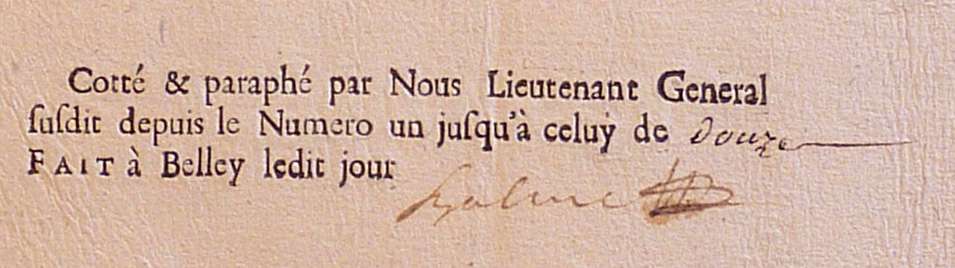 Cotté & paraphé par Nous Lieutenant General
ſuſdit depuis le Numero un juſqu'à celuy de douze
FAIT à Belley ledit jour